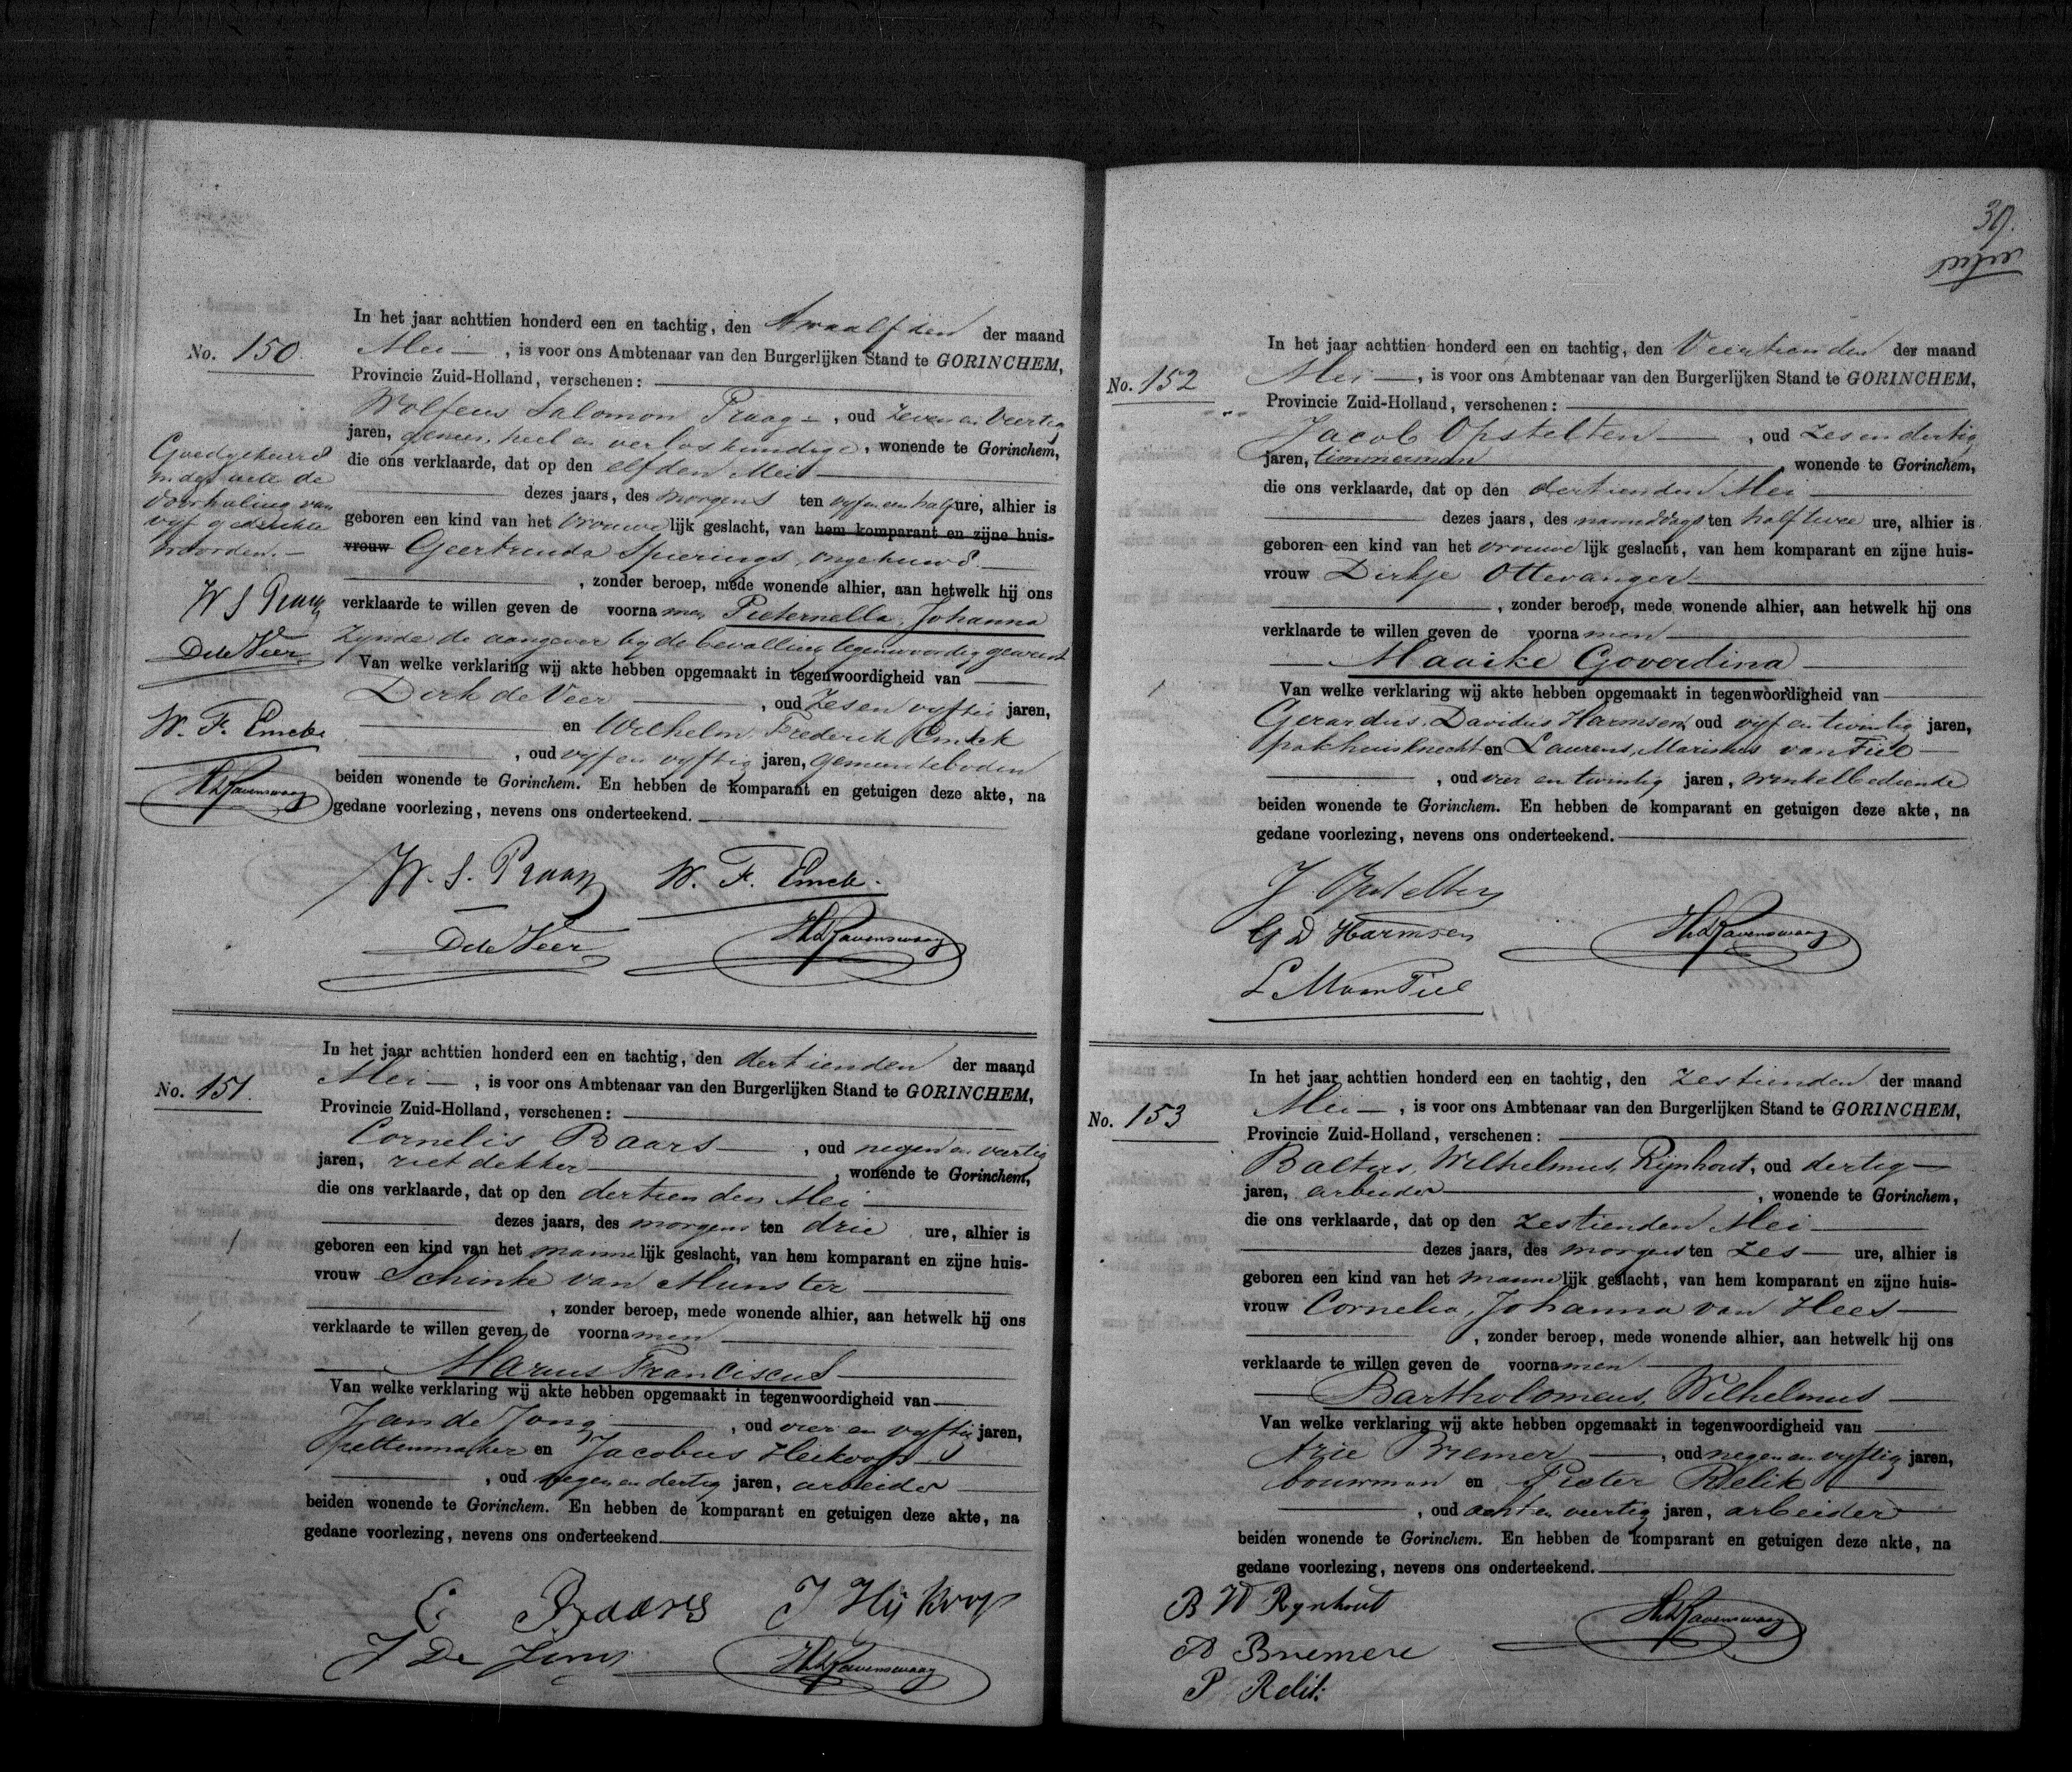 No. 150.
In het jaar achttien honderd een en tachtig, den Twaalfden der maand
Mei, is voor ons Ambtenaar van den Burgerlijken Stand te GORINCHEM,
Provincie Zuid-Holland, verschenen:
Wolfeus Salomon Praag, oud Zeven en Veertig
jaren, genees, heel en verloskundige, wonende te Gorinchem,
die ons verklaarde, dat op den elfden Mei
dezes jaars, des morgens ten vyf en een half ure, alhier is
geboren een kind van het vrouwelijk geslacht, van hem komparant en zijne huis-
vrouw Geertruida Spierings, ongehuwd
, zonder beroep, mede wonende alhier, aan hetwelk hij ons
verklaarde te willen geven de voornamen Pieternella, Johanna
Zynde de aangever by de bevalling tegenwoordig geweest
Van welke verklaring wij akte hebben opgemaakt in tegenwoordigheid van
Dirk de Veer, oud Zes en vyftig jaren,
en Wilhelm Frederik Emck
, oud vyf en vyftig jaren, Gemeenteboden
beiden wonende te Gorinchem. En hebben de komparant en getuigen deze akte, na
gedane voorlezing, nevens ons onderteekend.
Goedgekeurd
in deze acte de
doorhaling van
vyf gedrukte
woorden.
W S Praag
D de Veer
W. F. Emck
HRavenswaay
W. S. Praag W. F. Emck.
D de Veer HRavenswaay
No. 151.
In het jaar achttien honderd een en tachtig, den dertienden der maand
Mei, is voor ons Ambtenaar van den Burgerlijken Stand te GORINCHEM,
Provincie Zuid-Holland, verschenen:
Cornelis Baars, oud negen en veertig
jaren, rietdekker, wonende te Gorinchem,
die ons verklaarde, dat op den dertienden Mei
dezes jaars, des morgens ten drie ure, alhier is
geboren een kind van het mannelijk geslacht, van hem komparant en zijne huis-
vrouw Schinke van Munster
, zonder beroep, mede wonende alhier, aan hetwelk hij ons
verklaarde te willen geven de voornamen
Marius Franciscus
Van welke verklaring wij akte hebben opgemaakt in tegenwoordigheid van
Jan de Jong, oud vier en vyftig jaren,
pettenmaker en Jacobus Heikoop
, oud negen en dertig jaren, arbeider
beiden wonende te Gorinchem. En hebben de komparant en getuigen deze akte, na
gedane voorlezing, nevens ons onderteekend.
C Baars J Hij Koop
J De Jong HRavenswaay
39.
No. 152
In het jaar achttien honderd een en tachtig, den Veertienden der maand
Mei, is voor ons Ambtenaar van den Burgerlijken Stand te GORINCHEM,
Provincie Zuid-Holland, verschenen:
Jacob Opstelten, oud Zes en dertig
jaren, timmerman wonende te Gorinchem,
die ons verklaarde, dat op den dertienden Mei
dezes jaars, des nameddags ten half twee ure, alhier is
geboren een kind van het vrouwelijk geslacht, van hem komparant en zijne huis-
vrouw Dirkje Ottevanger
, zonder beroep, mede wonende alhier, aan hetwelk hij ons
verklaarde te willen geven de voornamen
Maaike Goverdina
Van welke verklaring wij akte hebben opgemaakt in tegenwoordigheid van
Gerardus, Davidus Harmsen, oud vyf en twintig jaren,
pakhuisknecht en Laurens, Marinus van Tiel
, oud vier en twintig jaren, winkelbediende
beiden wonende te Gorinchem. En hebben de komparant en getuigen deze akte, na
gedane voorlezing, nevens ons onderteekend.
J. Opstelten
G D Harmsen HRavenswaay
L M van Tiel
No. 153
In het jaar achttien honderd een en tachtig, den Zestienden der maand
Mei, is voor ons Ambtenaar van den Burgerlijken Stand te GORINCHEM,
Provincie Zuid-Holland, verschenen:
Baltus, Wilhelmus, Rijnhout, oud dertig
jaren, arbeider, wonende te Gorinchem,
die ons verklaarde, dat op den Zestienden Mei
dezes jaars, des morgens ten Zes ure, alhier is
geboren een kind van het mannelijk geslacht, van hem komparant en zijne huis-
vrouw Cornelia, Johanna van Hees
, zonder beroep, mede wonende alhier, aan hetwelk hij ons
verklaarde te willen geven de voornamen
Bartholomeus, Wilhelmus
Van welke verklaring wij akte hebben opgemaakt in tegenwoordigheid van
Arie Bremer, oud negen en vyftig jaren,
bouwman en Pieter Relik
, oud acht en veertig jaren, arbeider
beiden wonende te Gorinchem. En hebben de komparant en getuigen deze akte, na
gedane voorlezing, nevens ons onderteekend.
B W Rynhout HRavenswaay
A Bremer
P Relik